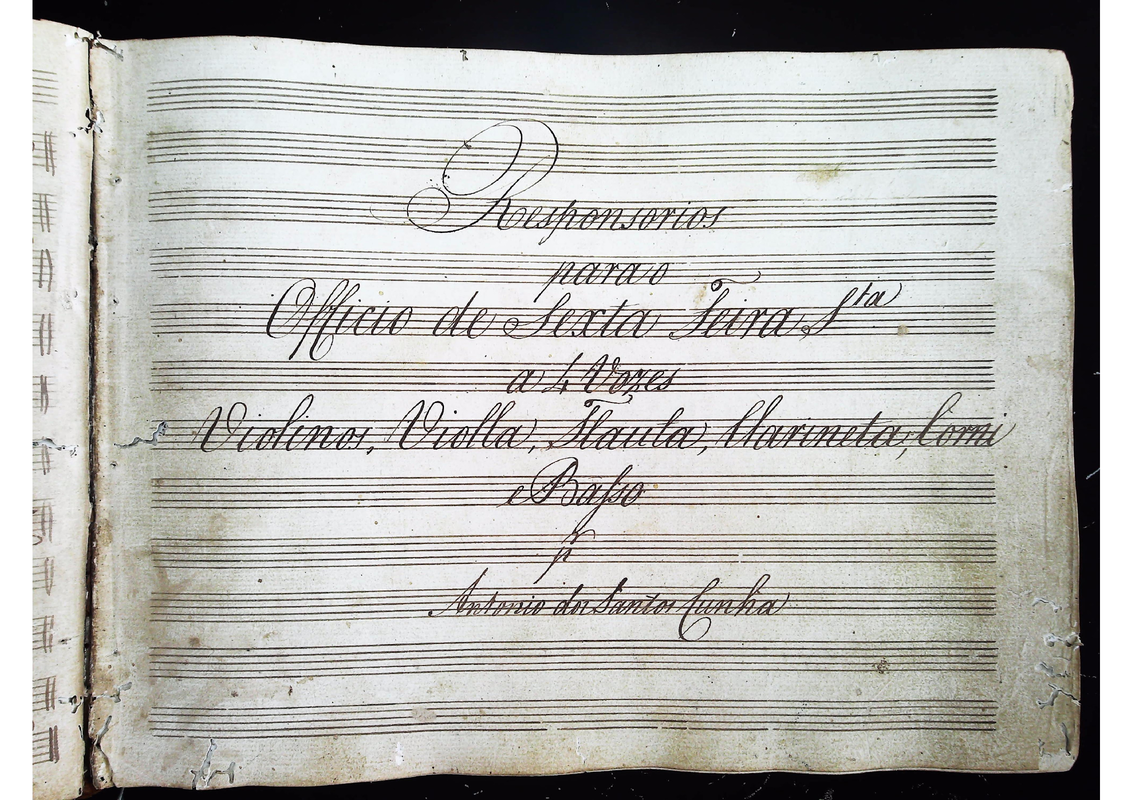 Responsorios
para o
Officio de Sexta Feira Sta
a 4 Vozes
Violinos, Violla, Flauta, Clarineta, Corni
e Basso
p
Antonio dos Santos Cunha